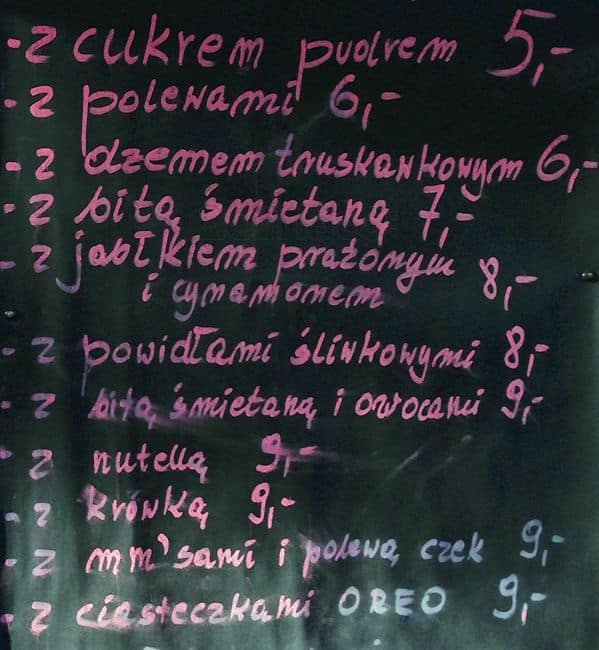 - z cukrem pudrem 5,-
- z polewami 6,-
- z dżemem truskawkowym 6,-
- z bitą śmietaną 7,-
- z jabłkiem prażonym 8,-
i cynamonem
- z powidłami śliwkowymi 8,-
- z bitą śmietaną i owocami 9,-
- z nutellą 9,-
- z krówką 9,-
- z mm'sami i polewą czek 9,-
- z ciasteczkami OREO 9,-